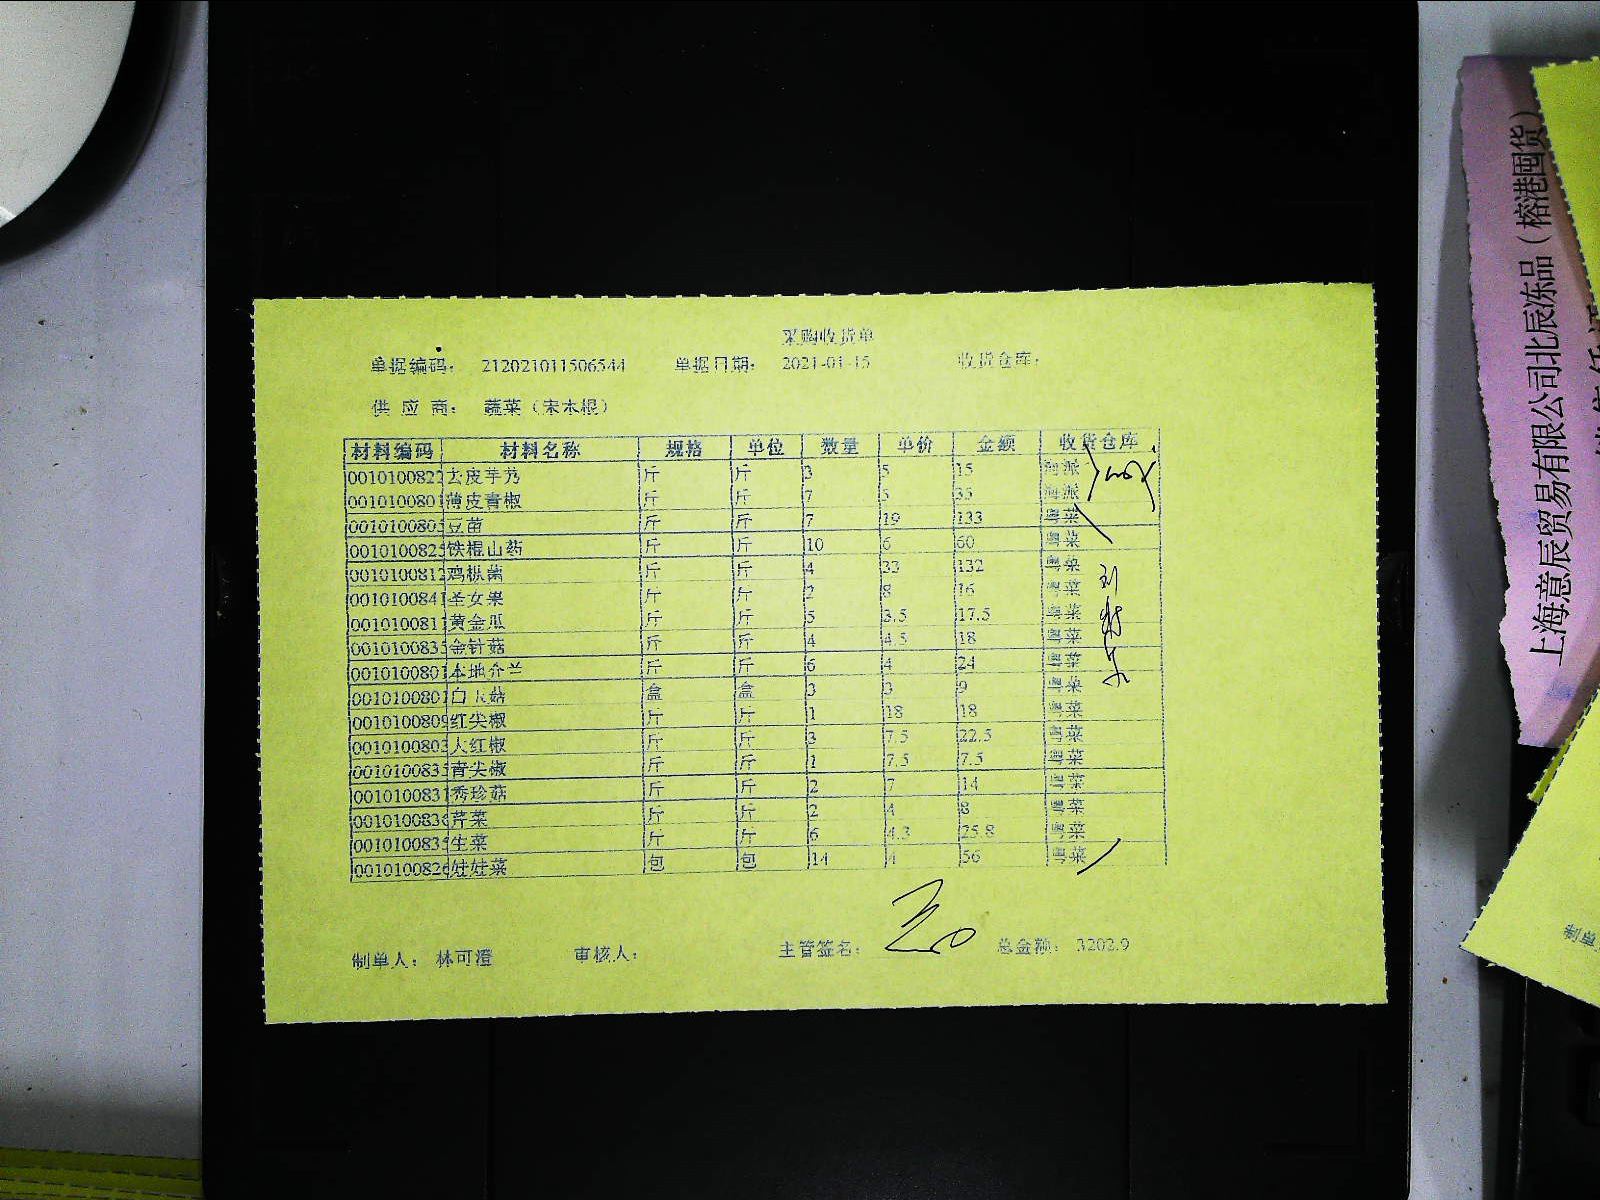 采购收货单
单据编码： 212021011506544 单据日期： 2021-01-15 收货仓库：
供 应 商： 蔬菜（宋木根）
材料编码 材料名称 规格 单位 数量 单价 金额 收货仓库
0010100822 去皮芋艿 斤 斤 3 5 15 海派
0010100801 薄皮青椒 斤 斤 7 5 35 海派
001010080 豆苗 斤 斤 7 19 133 菜
001010082 铁棍山药 斤 斤 10 6 60 菜
0010100812 鸡枞菌 斤 斤 4 33 132 菜
0010100841 圣女果 斤 斤 2 8 16 菜
0010100811 黄金瓜 斤 斤 5 3.5 17.5 菜
001010083 金针菇 斤 斤 4 4.5 18 菜
0010100801 本地介兰 斤 斤 6 4 24 菜
0010100801 白玉菇 盒 盒 3 3 9 菜
0010100809 红尖椒 斤 斤 1 18 18 菜
0010100803 大红椒 斤 斤 3 7.5 22.5 菜
001010083 青尖椒 斤 斤 1 7.5 7.5 菜
0010100831 秀珍菇 斤 斤 2 7 14 菜
0010100836 芹菜 斤 斤 2 4 8 菜
001010083 生菜 斤 斤 6 4.3 25.8 菜
0010100826 娃娃菜 包 包 14 4 56 菜
制单人： 林可澄 审核人： 主管签名： 总金额： 3202.9
上海意辰贸易有限公司北辰冻品（榕港囤货）
制单